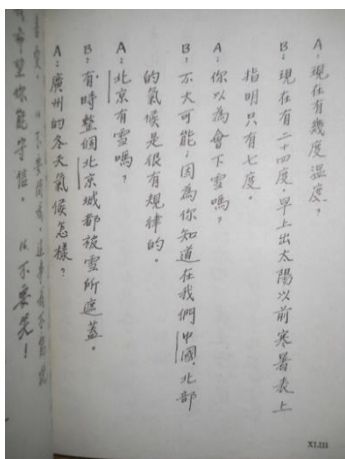 A：現在有幾度溫度？
B：現在有二十四度。早上出太陽以前寒暑表上
指明只有七度。
A：你以為會下雪嗎？
B：不大可能；因為你知道在我們中國北部
的氣候是很有規律的。
A：北京有雪嗎？
B：有時整個北京城都被雪所遮蓋。
A：廣州的冬天氣候怎樣？
你能守信。
不要哭！
XLIII